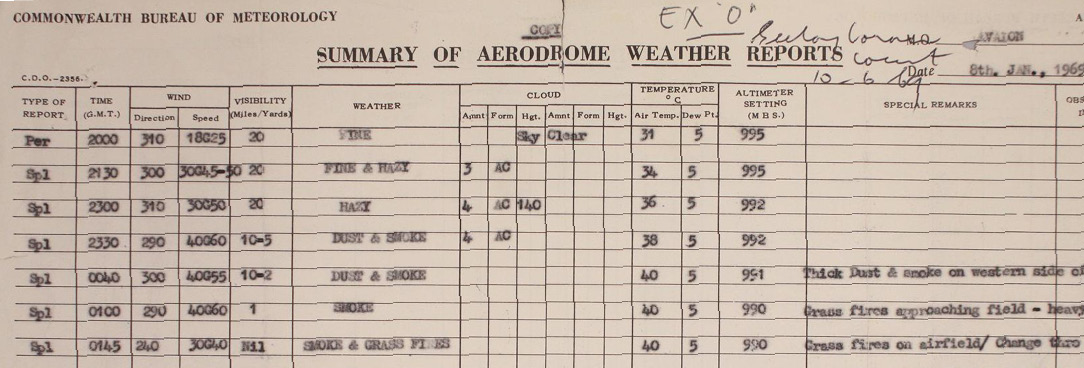 COMMONWEALTH BUREAU OF METEOROLOGY
EX "O"
COPY
SUMMARY OF AERODROME WEATHER REPORTS
AVALON
Court
C.D.O.-2356.
10-6-69
Date 8th. JAN., 1969
TYPE OF REPORT TIME (G.M.T.) WIND Direction Speed VISIBILITY (Miles/Yards) WEATHER CLOUD Amnt Form Hgt. Amnt Form Hgt. TEMPERATURE °C Air Temp. Dew Pt. ALTIMETER SETTING (MBS.) SPECIAL REMARKS
Per 2000 310 18G25 20 FINE Sky Clear 31 5 995
Spl 2130 300 30G45-50 20 FINE & HAZY 3 AC 34 5 995
Spl 2300 310 30G50 20 HAZY 4 AC 140 36 5 992
Spl 2330 290 40G60 10-5 DUST & SMOKE 4 AC 38 5 992
Spl 0040 300 40G55 10-2 DUST & SMOKE 40 5 991 Thick Dust & smoke on western side
Spl 0100 290 40G60 1 SMOKE 40 5 990 Grass fires approaching field - heavy
Spl 0145 240 30G40 Nil SMOKE & GRASS FIRES 40 5 990 Grass fires on airfield/ Change thro